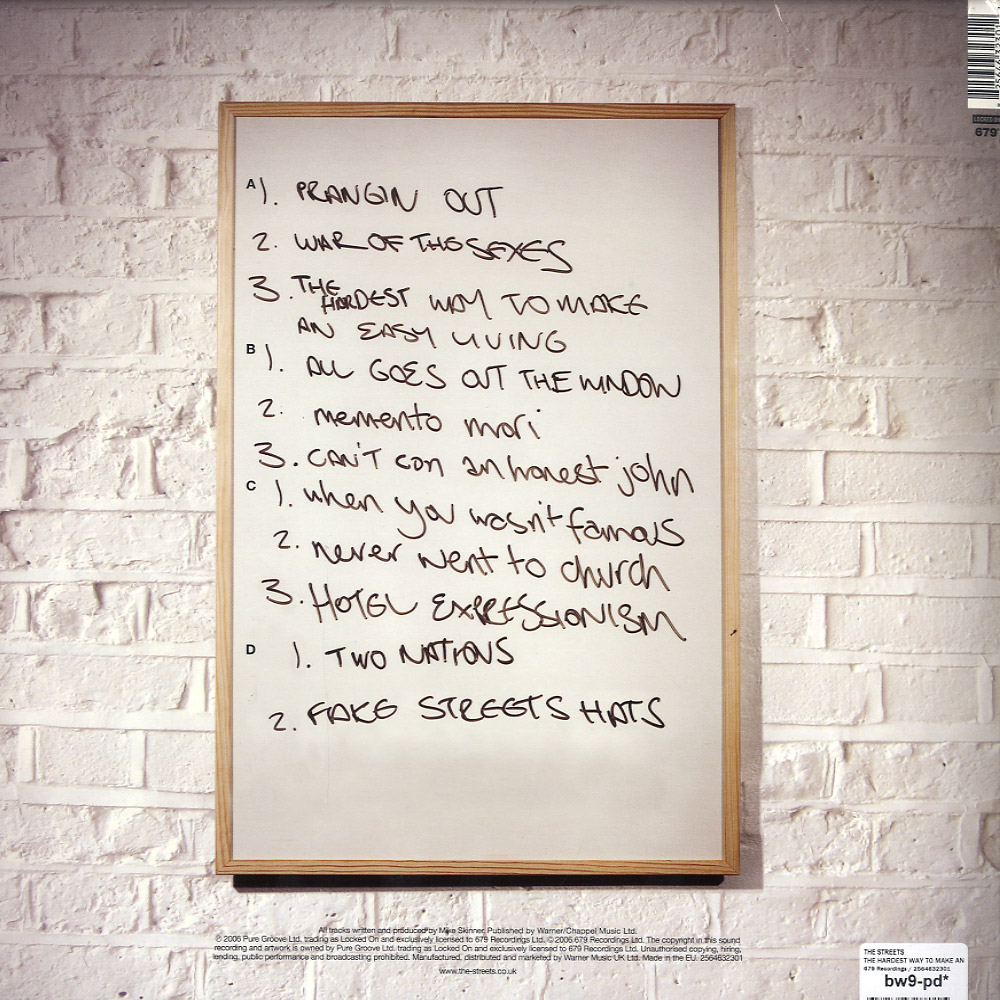 A 1. PRANGIN OUT
2. WAR OF THE SEXES
3. THE HARDEST WAY TO MAKE
AN EASY LIVING
B 1. ALL GOES OUT THE WINDOW
2. memento mori
3. CAN'T con an honest john
C 1. when you wasn't famous
2. never went to church
3. HOTEL EXPRESSIONISM
D 1. TWO NATIONS
2. FAKE STREETS HATS
All tracks written and produced by Mike Skinner, Published by Warner/Chappel Music Ltd.
℗ 2006 Pure Groove Ltd. trading as Locked On and exclusively licensed to 679 Recordings Ltd. © 2006 679 Recordings Ltd. The copyright in this sound
recording and artwork is owned by Pure Groove Ltd. trading as Locked On and exclusively licensed to 679 Recordings Ltd. Unauthorised copying, hiring,
lending, public performance and broadcasting prohibited. Manufactured, distributed and marketed by Warner Music UK Ltd. Made in the EU. 2564632301
www.the-streets.co.uk
LOCKED ON
679
THE STREETS
THE HARDEST WAY TO MAKE AN
679 Recordings / 2564632301
bw9-pd*